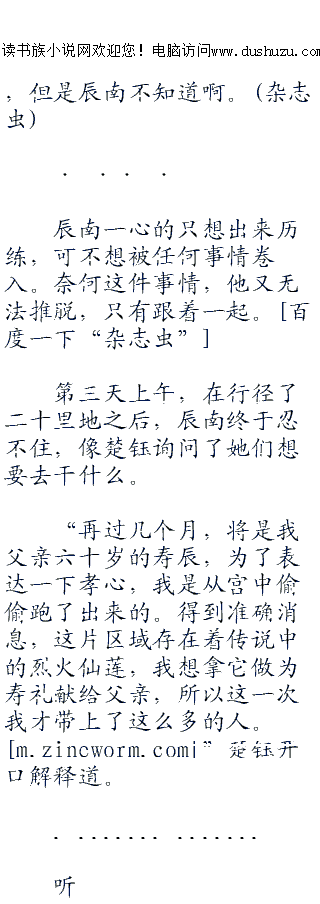 读书族小说网欢迎您！电脑访问www.dushuzu.com
，但是辰南不知道啊。(杂志
虫)
． ．．． ．
辰南一心的只想出来历
练，可不想被任何事情卷
入。奈何这件事情，他又无
法推脱，只有跟着一起。[百
度一下“杂志虫”]
第三天上午，在行径了
二十里地之后，辰南终于忍
不住，像楚钰询问了她们想
要去干什么。
“再过几个月，将是我
父亲六十岁的寿辰，为了表
达一下孝心，我是从宫中偷
偷跑了出来的。得到准确消
息，这片区域存在着传说中
的烈火仙莲，我想拿它做为
寿礼献给父亲，所以这一次
我才带上了这么多的人。
[m.zincworm.com|”楚钰开
口解释道。
．．．．．．．．．．．．．．．
听